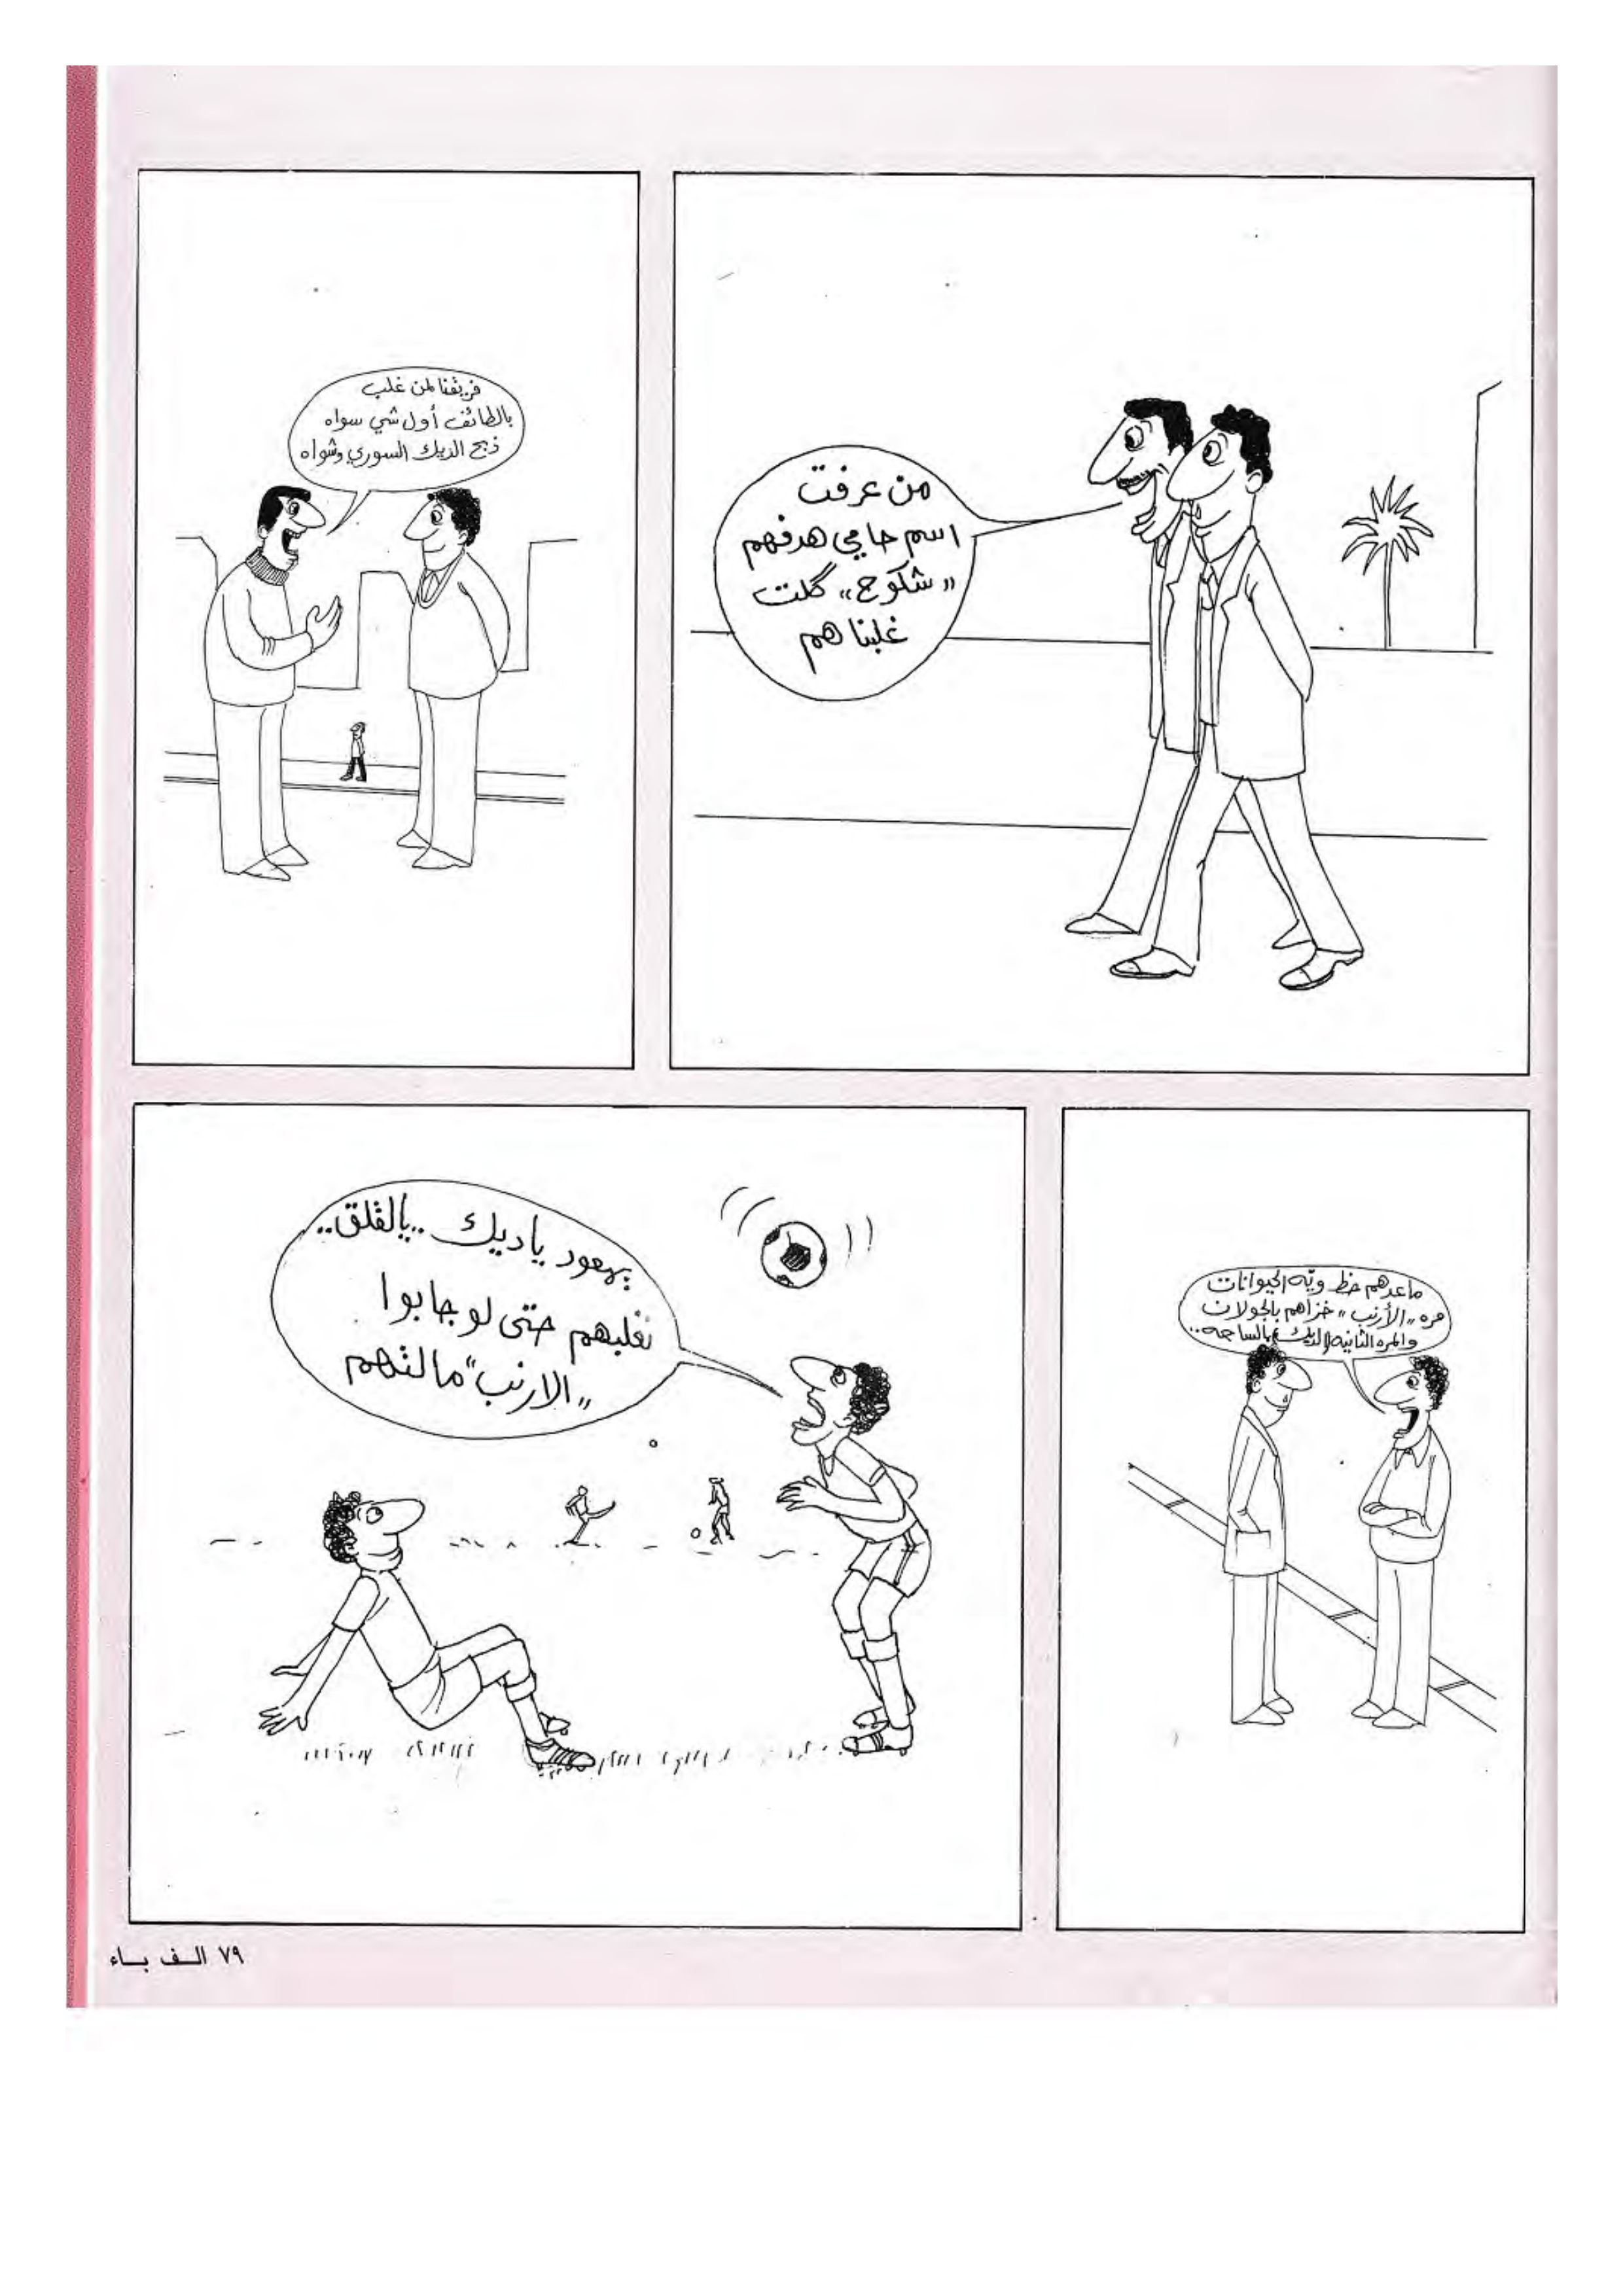 من عرفت
اسم حامي هدفهم
"شكوح" گلت
غلبناهم
فريقنا لمن غلب
بالطائف أول شي سواه
ذبح الديك السوري وشواه
ماعدهم حظ ويّه الحيوانات
مره "الأرنب" خزاهم بالجولان
والمره الثانيه الديك بالساحه..
يهعود ياديك.. يالقلق..
نغلبهم حتى لو جابوا
"الارنب" مالتهم
٧٩ الف باء